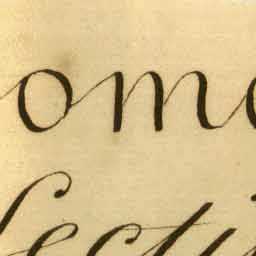 ome
lecti